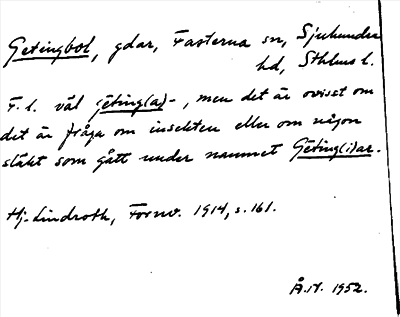 Getingbol, gdar, Fasterna sn, Sjuhundra
hd, Sthlms l.
F. l. väl geting(a)-, men det är ovisst om
det är fråga om insekten eller om någon
släkt som gått under namnet Geting(i)ar.
Hj. Lindroth, Fornv. 1914, s. 161.
Å.N. 1952.